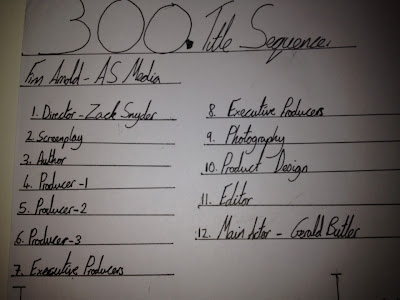 300. Title Sequence.
Finn Arnold - AS Media
1. Director - Zack Snyder
2. Screenplay
3. Author
4. Producer - 1
5. Producer - 2
6. Producer - 3
7. Executive Producers
8. Executive Producers
9. Photography
10. Product Design
11. Editor
12. Main Actor - Gerald Butler